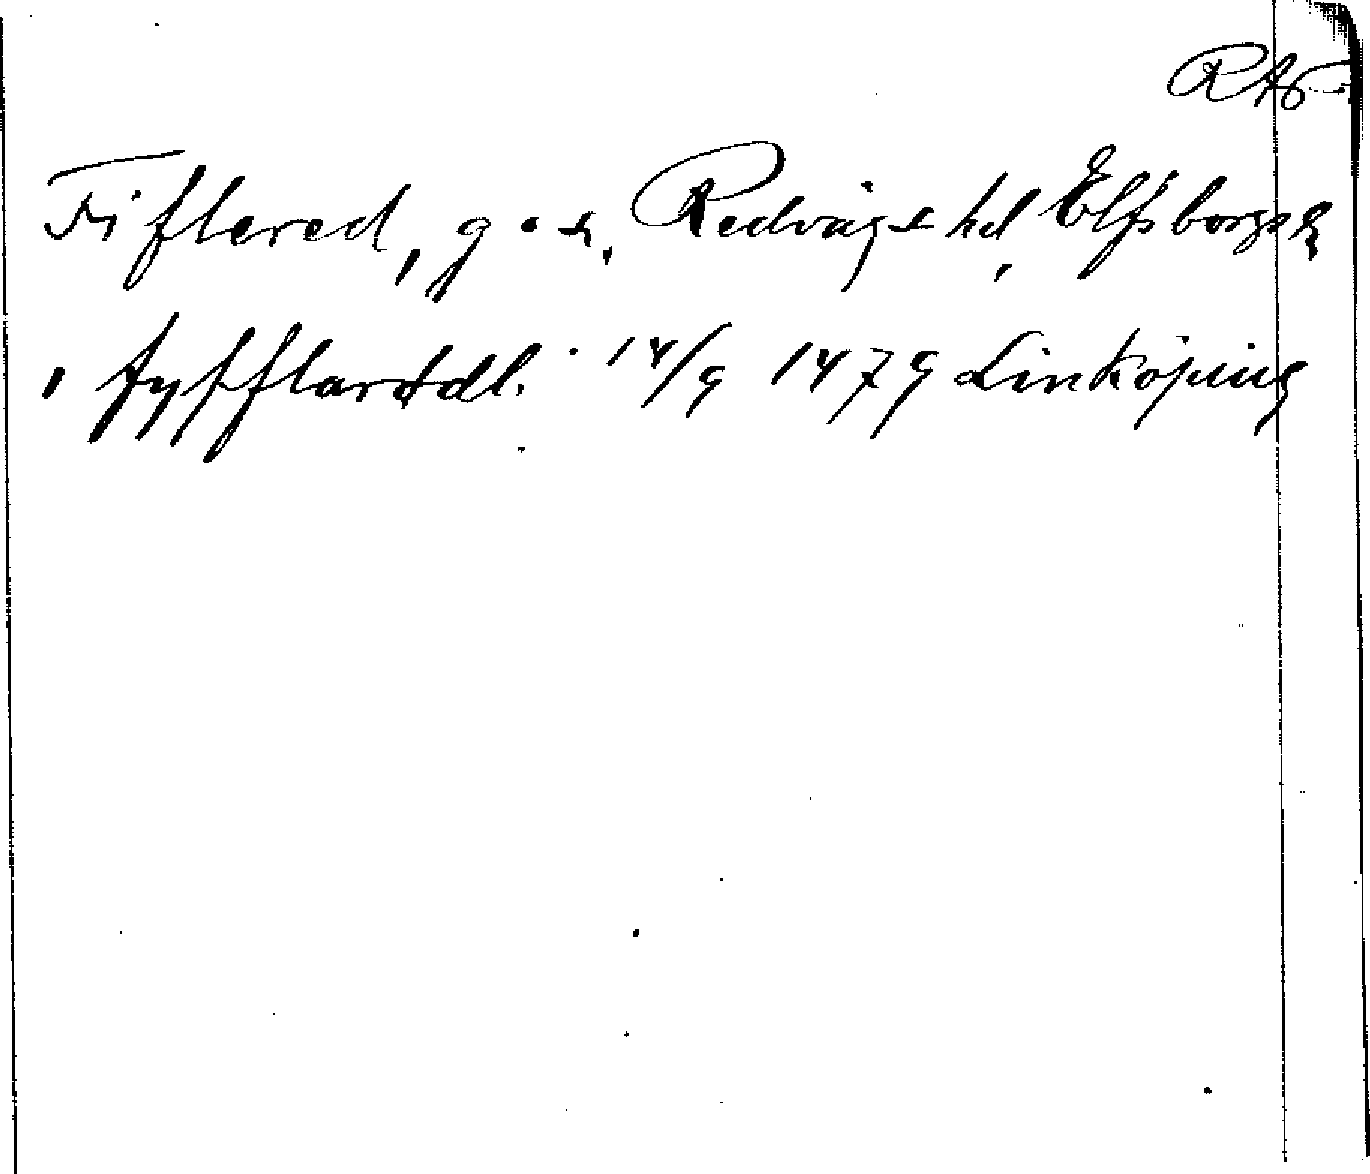 RAp
Fiflered, g. o. s., Redvägs hd, Elfsborgs l.
, fyfflarddl. 14/9 1479 Linköping